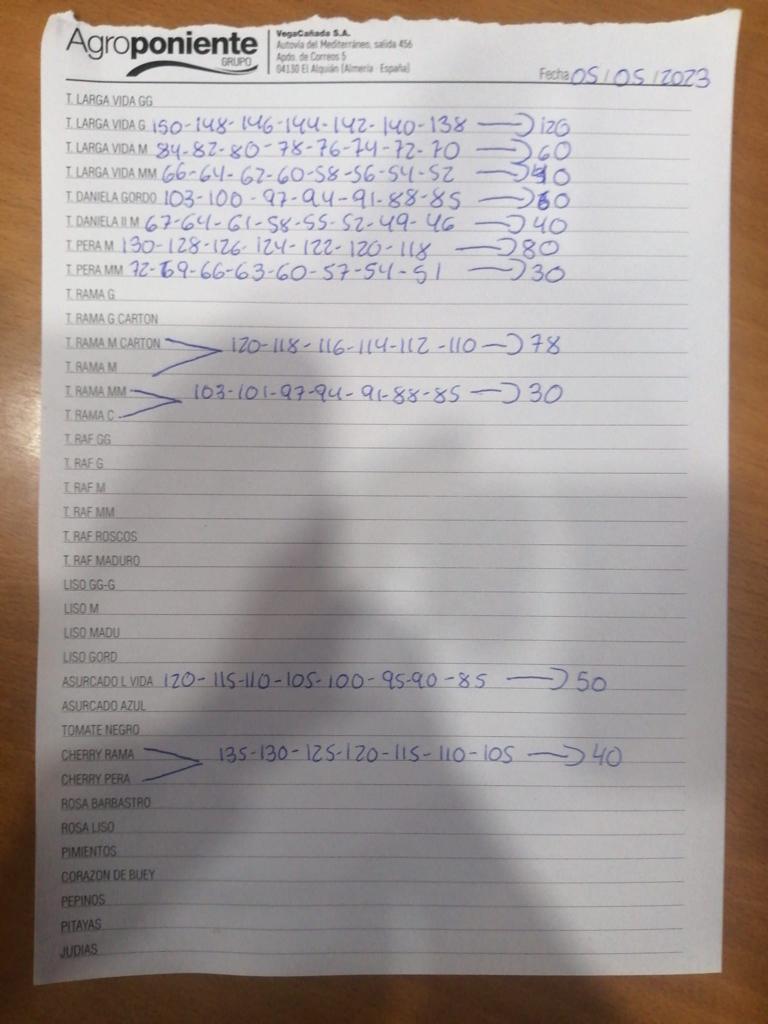 Agroponiente
GRUPO
VegaCañada S.A.
Autovía del Mediterráneo, salida 456
Apdo. de Correos 5
04130 El Alquián (Almería · España)
Fecha 05/05/2023
T. LARGA VIDA GG
T. LARGA VIDA G 150-148-146-144-142-140-138 → 120
T. LARGA VIDA M 84-82-80-78-76-74-72-70 → 60
T. LARGA VIDA MM 66-64-62-60-58-56-54-52 → 40
T. DANIELA GORDO 103-100-97-94-91-88-85 → 60
T. DANIELA II M 67-64-61-58-55-52-49-46 → 40
T. PERA M 130-128-126-124-122-120-118 → 80
T. PERA MM 72-69-66-63-60-57-54-51 → 30
T. RAMA G
T. RAMA G CARTON
T. RAMA M CARTON 120-118-116-114-112-110 → 78
T. RAMA M
T. RAMA MM 103-101-97-94-91-88-85 → 30
T. RAMA C
T. RAF GG
T. RAF G
T. RAF M
T. RAF MM
T. RAF ROSCOS
T. RAF MADURO
LISO GG-G
LISO M
LISO MADU
LISO GORD
ASURCADO L VIDA 120-115-110-105-100-95-90-85 → 50
ASURCADO AZUL
TOMATE NEGRO
CHERRY RAMA 135-130-125-120-115-110-105 → 40
CHERRY PERA
ROSA BARBASTRO
ROSA LISO
PIMIENTOS
CORAZON DE BUEY
PEPINOS
PITAYAS
JUDIAS